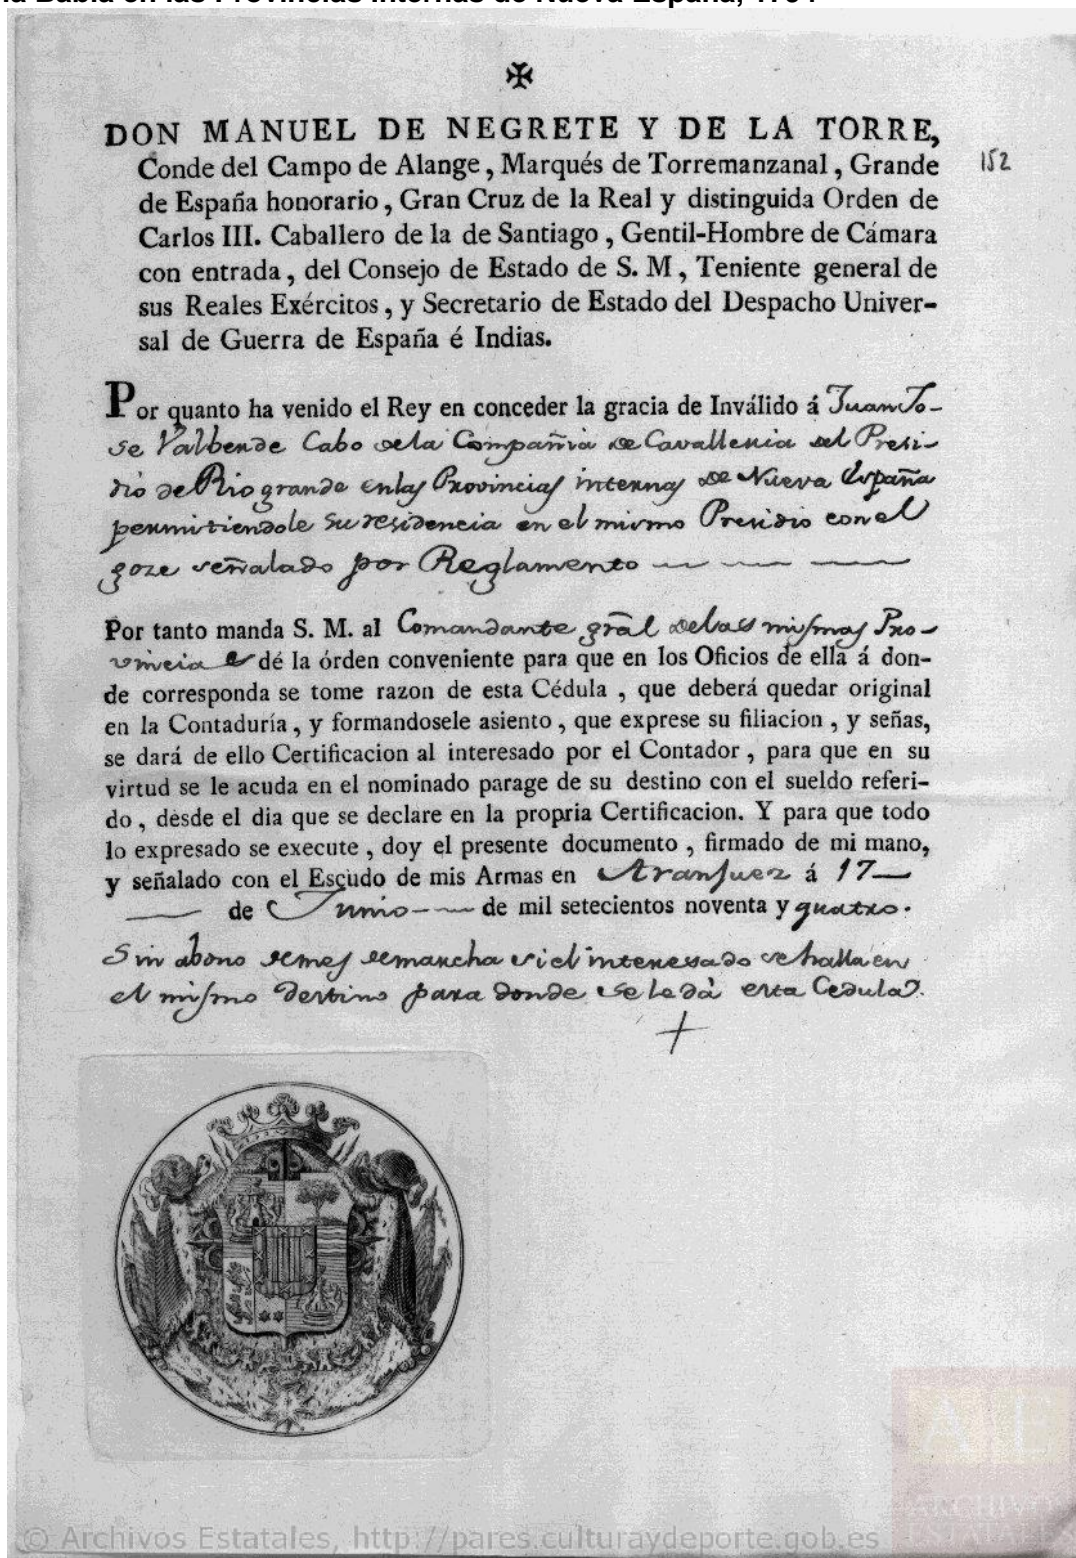 la Babia en las Provincias Internas de Nueva España, 1794
✠
DON MANUEL DE NEGRETE Y DE LA TORRE,
Conde del Campo de Alange, Marqués de Torremanzanal, Grande
de España honorario, Gran Cruz de la Real y distinguida Orden de
Carlos III. Caballero de la de Santiago, Gentil-Hombre de Cámara
con entrada, del Consejo de Estado de S. M, Teniente general de
sus Reales Exércitos, y Secretario de Estado del Despacho Univer-
sal de Guerra de España é Indias.
152
Por quanto ha venido el Rey en conceder la gracia de Inválido á Juan Jo-
se Valberde Cabo de la Compañia de Cavalleria del Presi-
dio de Rio grande en las Provincias internas de Nueva España
permitiendole su residencia en el mismo Presidio con el
goze señalado por Reglamento
Por tanto manda S. M. al Comandante grāl de las mismas Pro-
vincias dé la órden conveniente para que en los Oficios de ella á don-
de corresponda se tome razon de esta Cédula, que deberá quedar original
en la Contaduría, y formandosele asiento, que exprese su filiacion, y señas,
se dará de ello Certificacion al interesado por el Contador, para que en su
virtud se le acuda en el nominado parage de su destino con el sueldo referi-
do, desde el dia que se declare en la propria Certificacion. Y para que todo
lo expresado se execute, doy el presente documento, firmado de mi mano,
y señalado con el Escudo de mis Armas en Aranjuez á 17
de Junio de mil setecientos noventa y quatro.
Sin abono de mes de marcha si el interesado se halla en
el mismo destino para donde se le dá esta Cedula.
AE
ARCHIVOS
ESTATALES
© Archivos Estatales, http://pares.culturaydeporte.gob.es